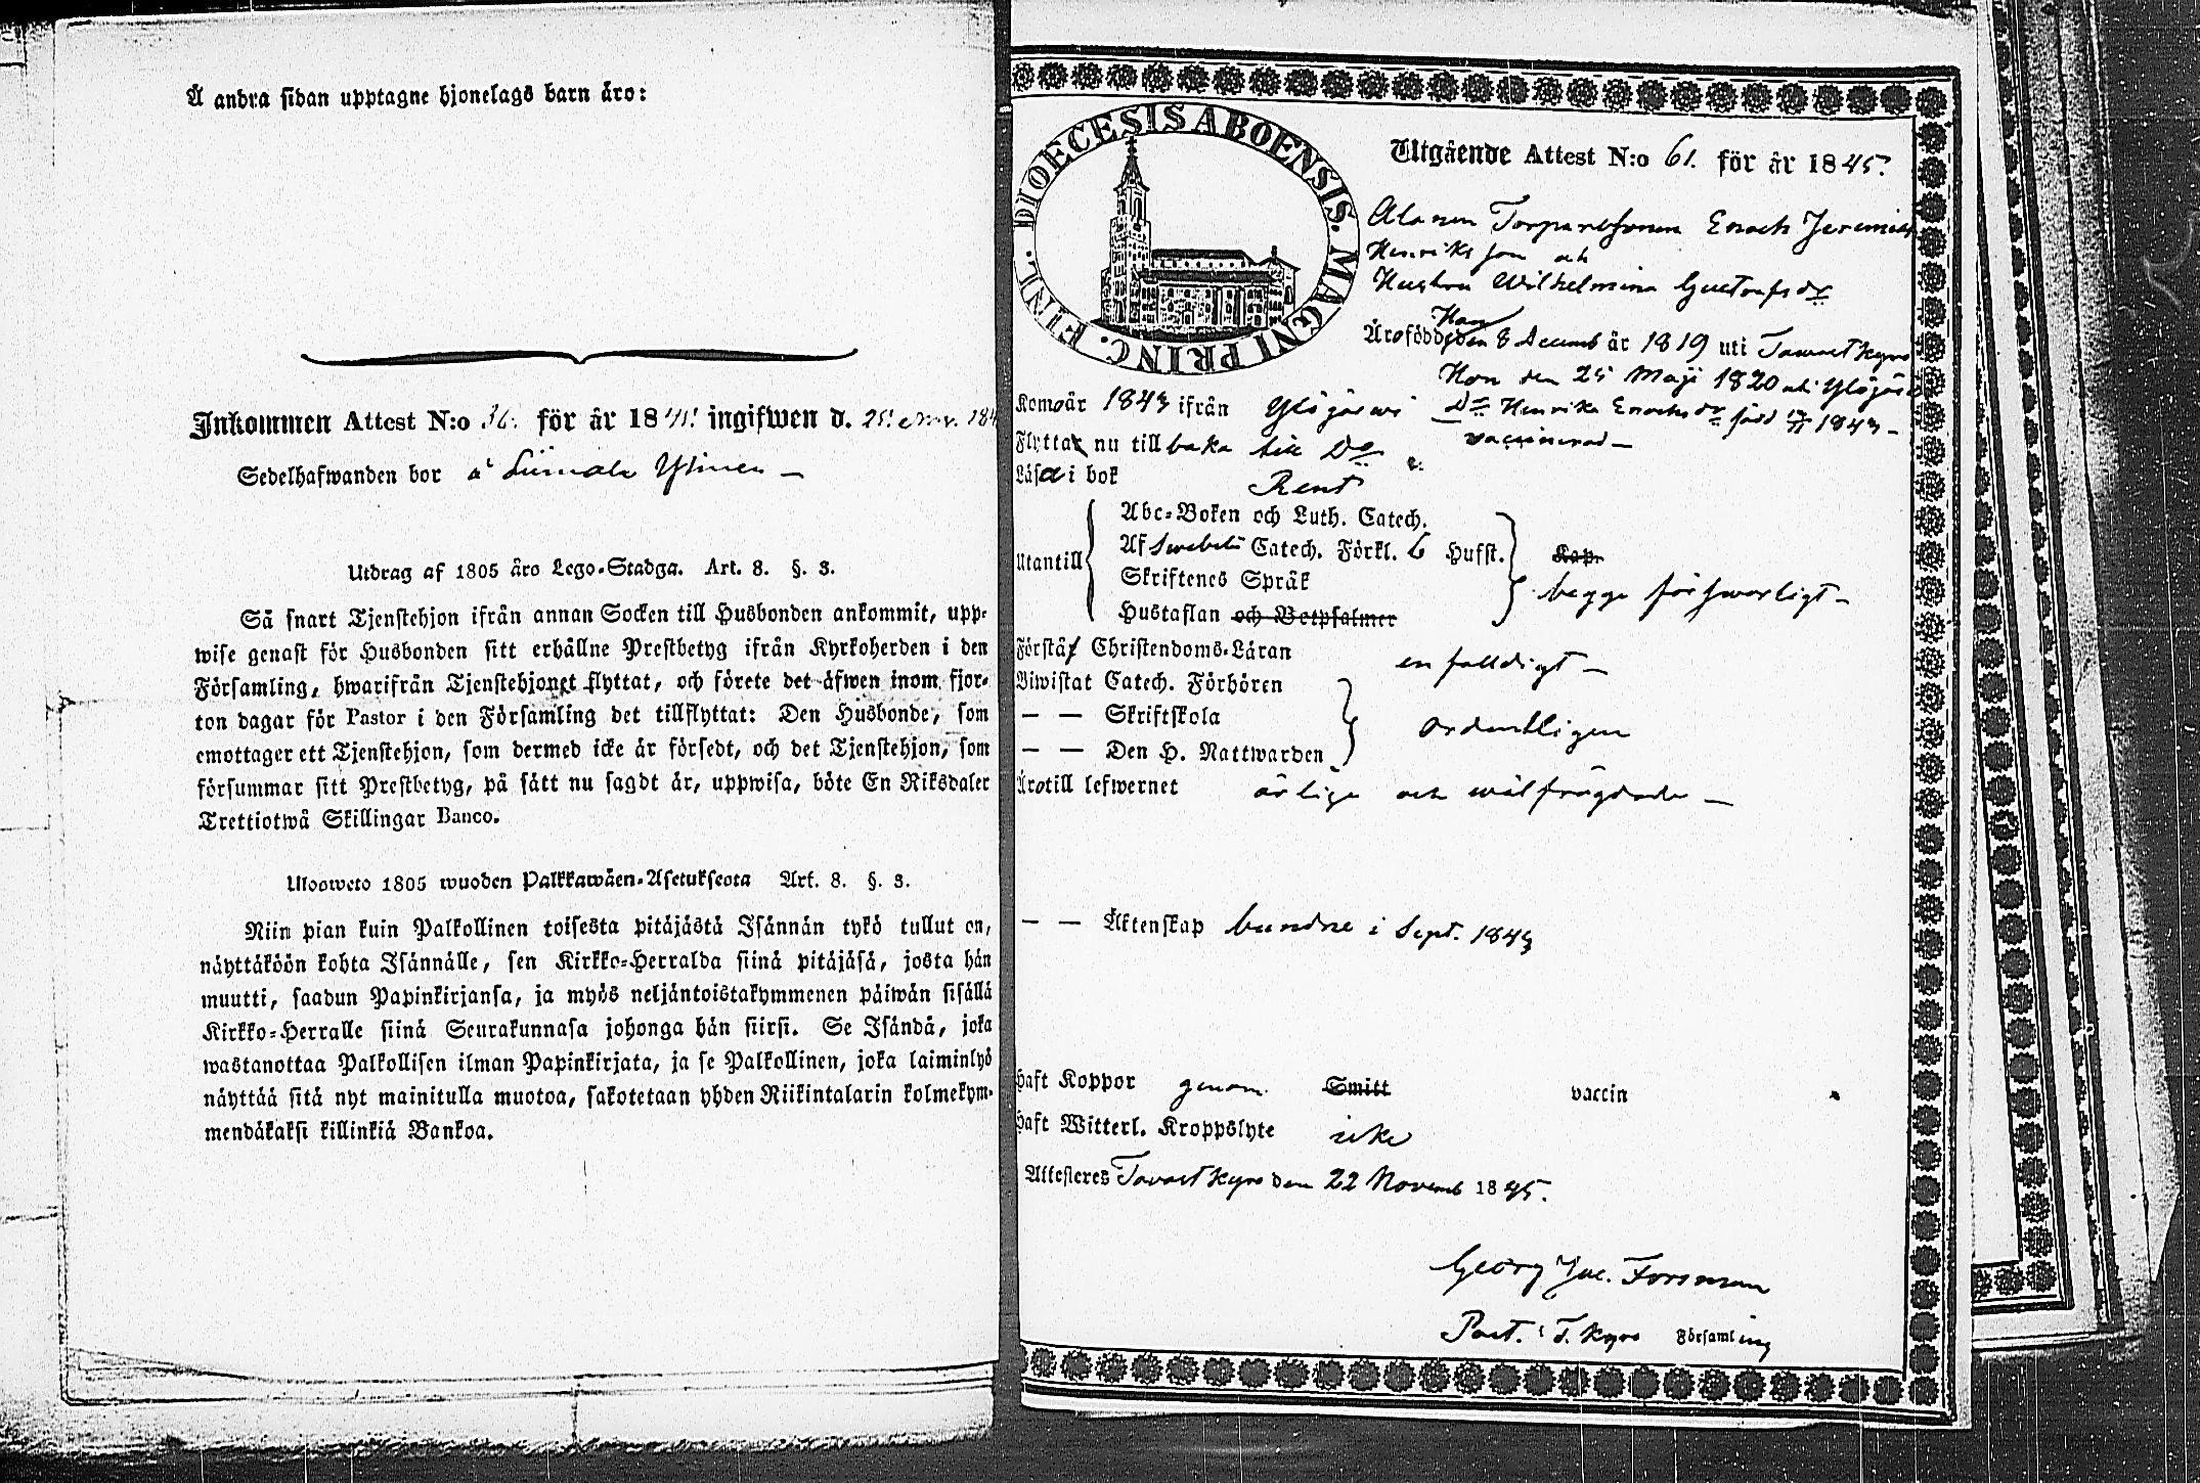 Å andra sidan upptagne hjonelags barn äro:
Inkommen Attest N:o 36. för år 1845. ingifwen d. 25. Nov. 184
Sedelhafwanden bor å Liimola Ylinen —
Utdrag af 1805 års Lego-Stadga. Art. 8. §. 3.
Så snart Tjenstehjon ifrån annan Socken till Husbonden ankommit, upp-
wise genast för Husbonden sitt erhållne Prestbetyg ifrån Kyrkoherden i den
Församling, hwarifrån Tjenstehjonet flyttat, och förete det äfwen inom fjor-
ton dagar för Pastor i den Församling det tillflyttat: Den Husbonde, som
emottager ett Tjenstehjon, som dermed icke är försedt, och det Tjenstehjon, som
försummar sitt Prestbetyg, på sätt nu sagdt är, uppwisa, böte En Riksdaler
Trettiotwå Skillingar Banco.
Ulosweto 1805 wuoden Palkkawäen-Asetuksesta Art. 8. §. 3.
Niin pian kuin Palkollinen toisesta pitäjästä Isännän tykö tullut on,
näyttäköön kohta Isännälle, sen Kirkko-Herralda siinä pitäjäsä, josta hän
muutti, saadun Papinkirjansa, ja myös neljäntoistakymmenen päiwän sisällä
Kirkko-Herralle siinä Seurakunnasa johonga hän siirsi. Se Isändä, joka
wastanottaa Palkollisen ilman Papinkirjata, ja se Palkollinen, joka laiminlyö
näyttää sitä nyt mainitulla muotoa, sakotetaan yhden Riikintalarin kolmekym-
mendäkaksi killinkiä Bankoa.
DIOECESIS ABOENSIS. MAGNI PRINC. FINL.
Utgående Attest N:o 61. för år 1845.
Alanen Torparesonen Enoch Jeremias
Henriksson och
Hustru Wilhelmina Gustafsdr
Han
Äro födde den 8 Decemb år 1819 uti Tawastkyro
Hon den 25 Maji 1820 uti Ylöjärwi
Komo år 1843 ifrån Ylöjärwi Dr Henrika Enochsdr född 1843 —
Flytta nu tillbaka till Do vaccinerad —
Läsa i bok Rent
Utantill
Abc-Boken och Luth. Catech.
Af Swebelii Catech. Förkl. 6 Hufst. Kap.
Skriftenes Språk begge förswarligt —
Hustaflan och Botpsalmer
Förstå Christendoms-Läran enfalldigt —
Biwistat Catech. Förhören
— — Skriftskola ordentligen
— — Den H. Nattwarden
Äro till lefwernet ärlige och wälfrägdade —
— — Äktenskap bundne i Sept. 1843
Haft Koppor genom Smitt vaccin
Haft Witterl. Kroppslyte icke
Attesteres Tavastkyro den 22 Novemb 1845.
Georg Jac. Forsman
Past. i T.kyro Församling